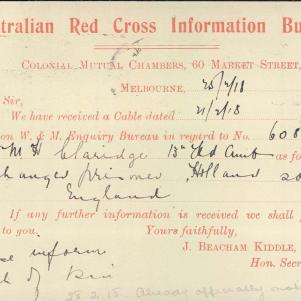 stralian Red Cross Information Bu
COLONIAL MUTUAL CHAMBERS, 60 MARKET STREET,
MELBOURNE, 25/2/18
Sir,
We have received a Cable dated 21/2/18
on W. & M. Enquiry Bureau in regard to No. 608
M H Claridge 13th Fld Amb as fo
changed prisoner, Holland so
England
If any further information is received we shall
to you. Yours faithfully,
J. BEACHAM KIDDLE,
Hon. Secr
se inform
of Kin
28.2.18. Already officially noti